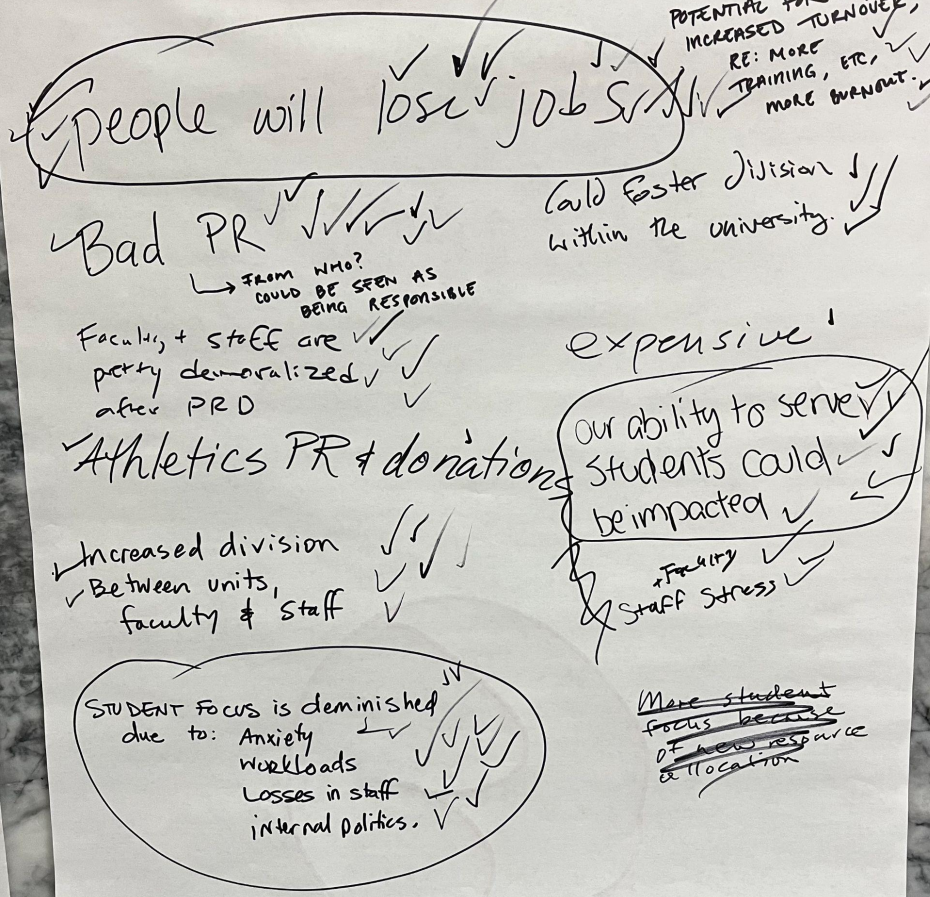 POTENTIAL FOR
INCREASED TURNOVER,
RE: MORE
TRAINING, ETC,
MORE BURNOUT.
people will lose jobs
Could Foster Division
within the university.
Bad PR
FROM WHO?
COULD BE SEEN AS
BEING RESPONSIBLE
Faculty + staff are
pretty demoralized
after PRD
expensive!
our ability to serve
students could
be impacted
Athletics PR & donations
+Faculty
Staff Stress
Increased division
Between units,
faculty & staff
STUDENT FOCUS is deminished
due to: Anxiety
Workloads
Losses in staff
internal politics.
More student
focus because
of new resource
allocation